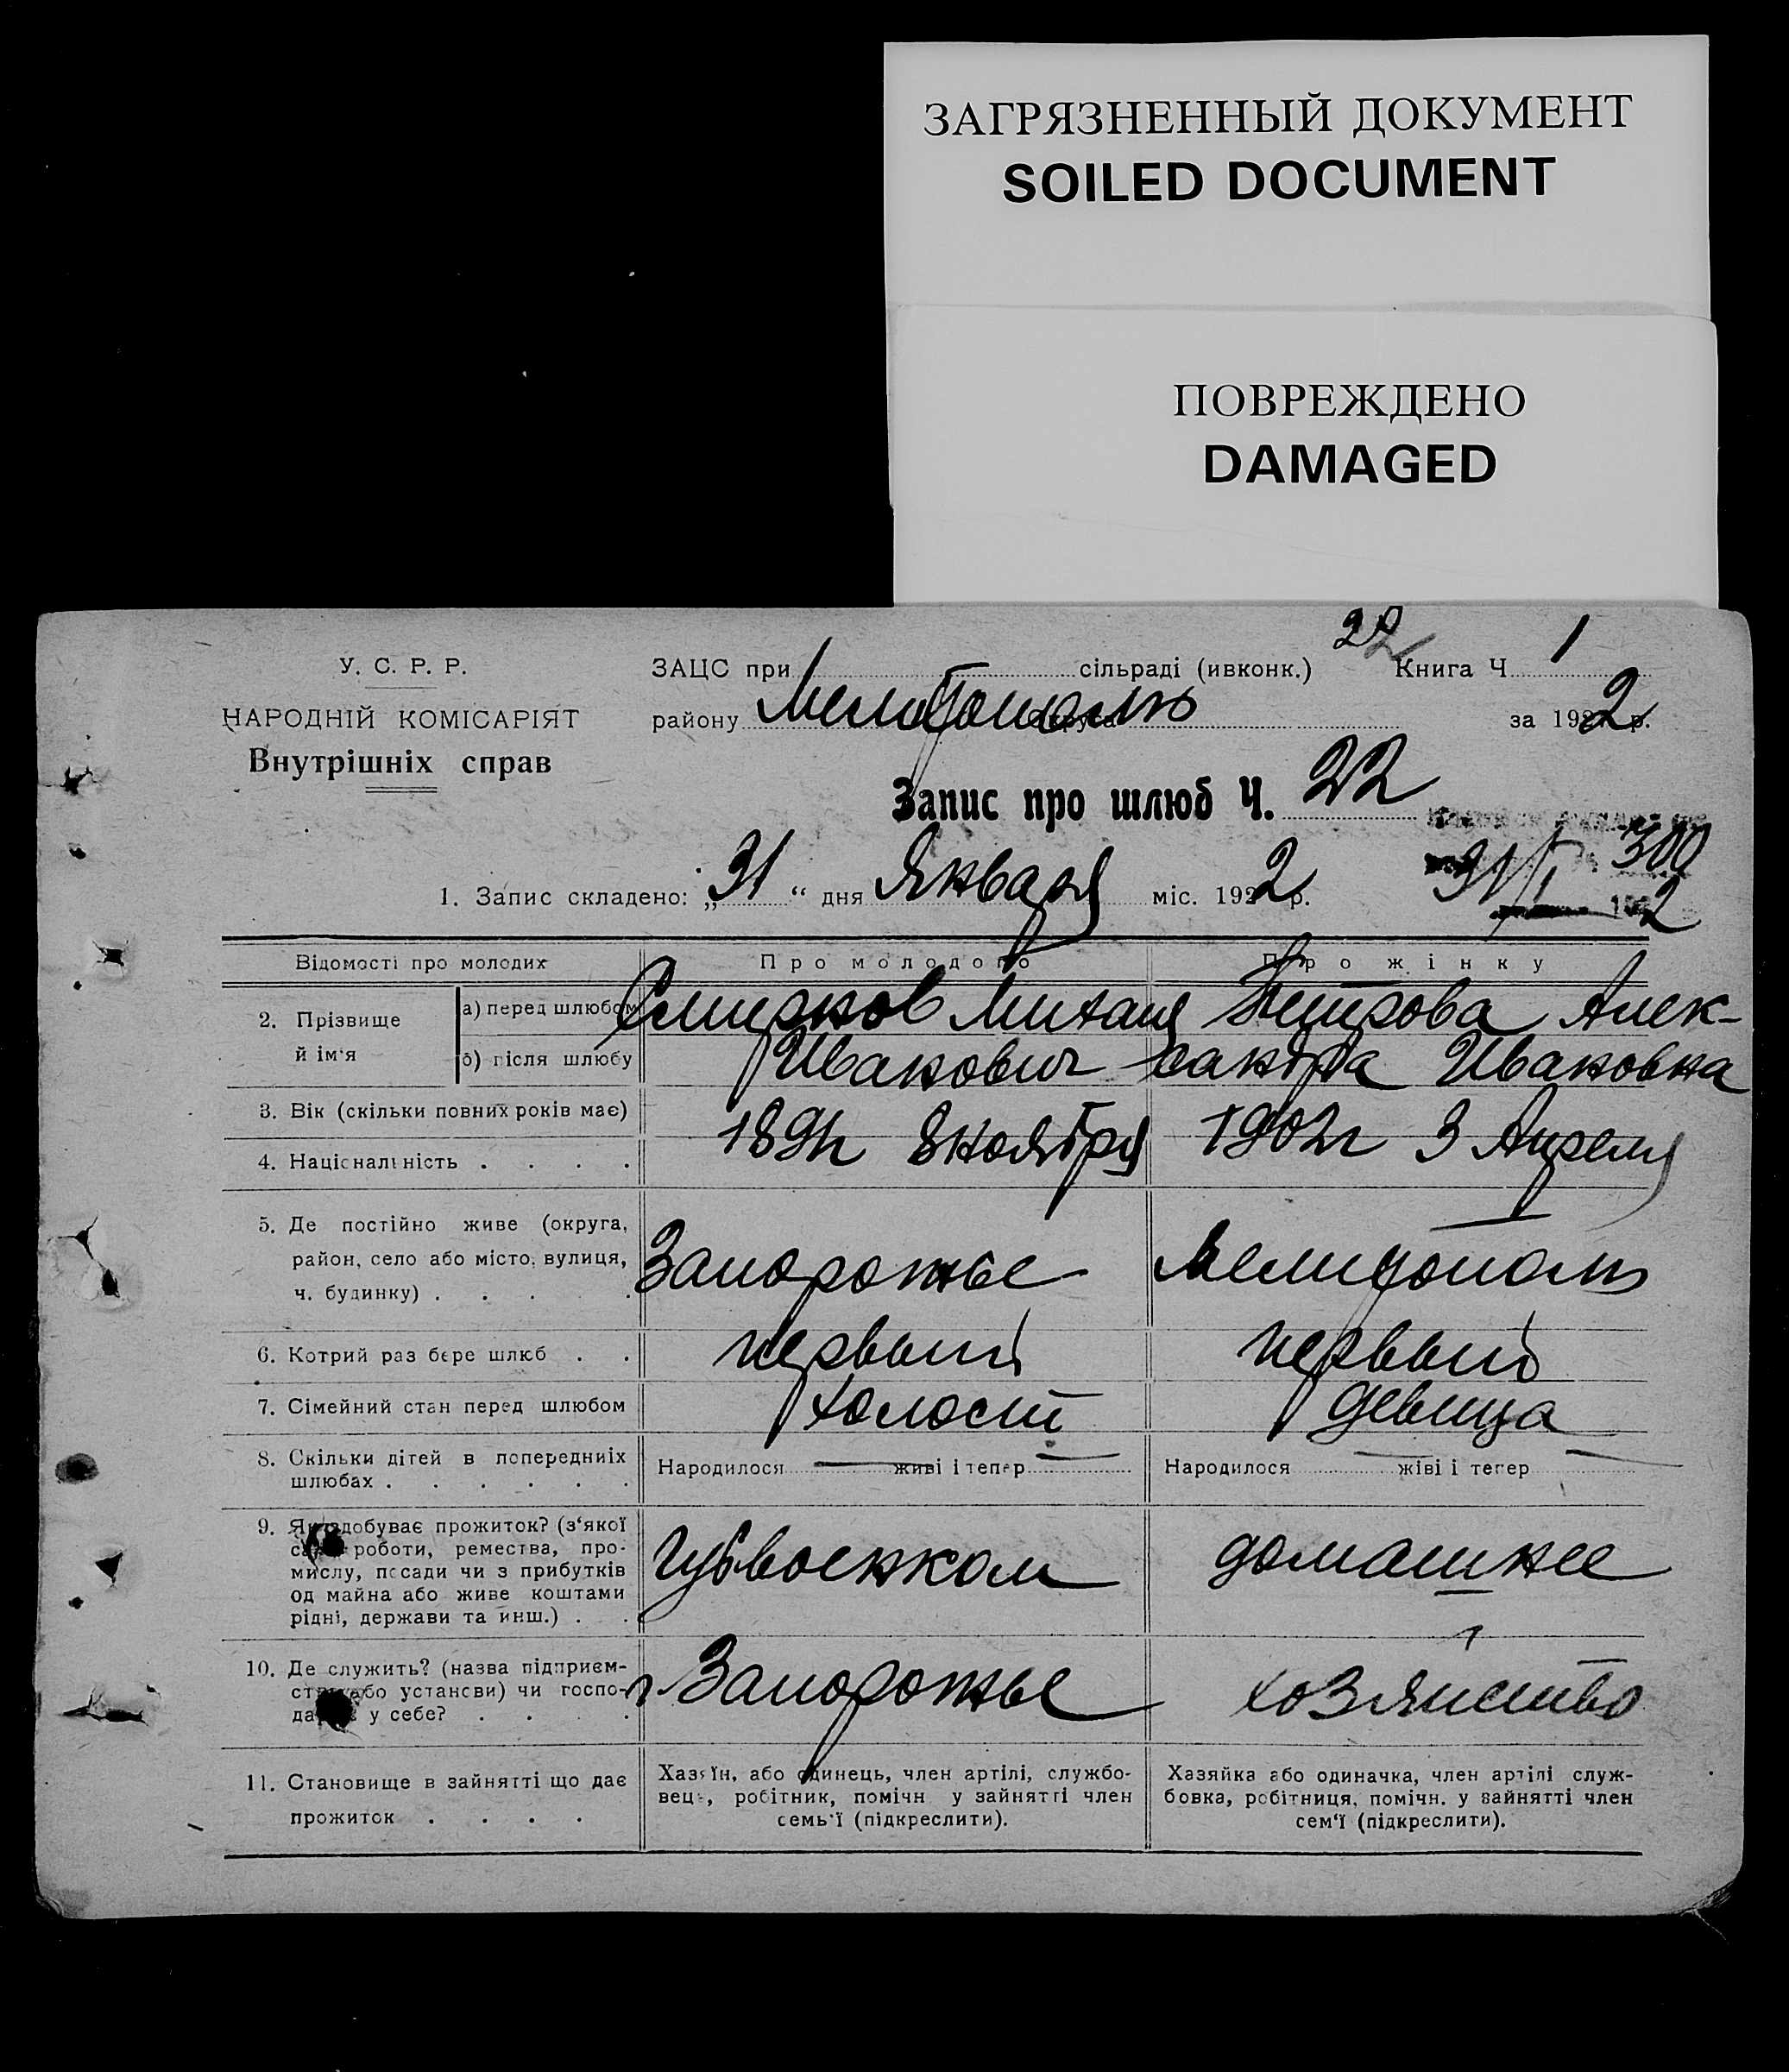 ЗАГРЯЗНЕННЫЙ ДОКУМЕНТ
SOILED DOCUMENT
ПОВРЕЖДЕНО
DAMAGED
У. С. Р. Р.
НАРОДНІЙ КОМІСАРІЯТ
Внутрішніх справ
22
ЗАЦС при сільраді (ивконк.) Книга Ч 1
району Мелитополь за 1922 р.
Запис про шлюб Ч. 22
300
31/I 2
1. Запис складено: „31“ дня Января міс. 1922 р.
Відомості про молодих Про молодого Про жінку
2. Прізвище й ім‘я
а) перед шлюбом Смирнов Михаил Петрова Алек-
б) після шлюбу Иванович сандра Ивановна
3. Вік (скільки повних років має)
189 г 8 ноября 1902 г 3 Апреля
4. Національність . . . .
5. Де постійно живе (округа,
район, село або місто, вулиця,
ч. будинку) . . . . .
Запорожье Мелитополь
6. Котрий раз бере шлюб . . первый первый
7. Сімейний стан перед шлюбом холост девица
8. Скільки дітей в попередниіх
шлюбах . . . . . .
Народилося — живі і тепер — Народилося — жіві і тепер —
9. Як здобуває прожиток? (з‘якої
роботи, ремества, про-
мислу, посади чи з прибутків
од майна або живе коштами
рідні, держави та инш.) . .
Губвоенком домашнее
10. Де служить? (назва підприєм-
ства або установи) чи госпо-
дарює у себе? . . . .
г Запорожье хозяйство
11. Становище в зайнятті що дає
прожиток . . . .
Хазяїн, або одинець, член артілі, службо-
вець, робітник, помічн у зайнятті член
семь‘ї (підкреслити).
Хазяйка або одиначка, член артілі служ-
бовка, робітниця, помічн. у зайнятті член
сем‘ї (підкреслити).